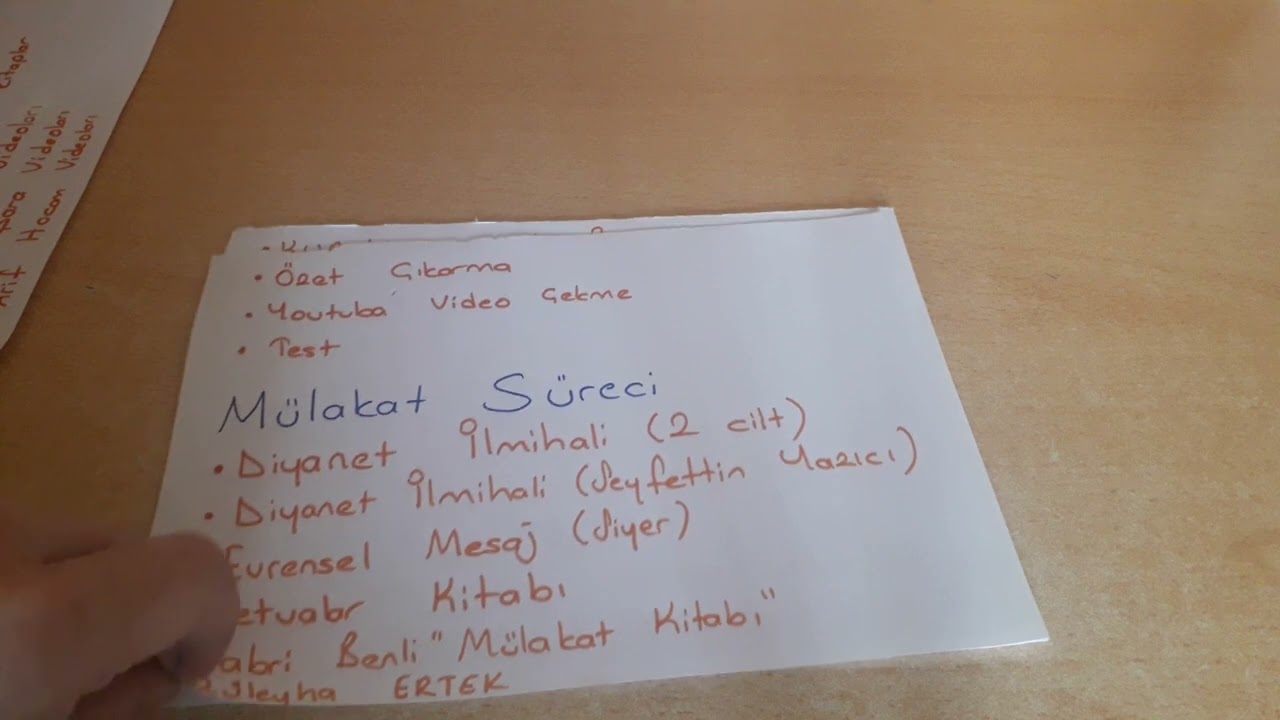 Kitaplar
Videoları
para Videoları
Arif Hocam Videoları
• Özet Çıkarma
• Youtuba Video Çekme
• Test
Mülakat Süreci
• Diyanet İlmihali (2 cilt)
• Diyanet İlmihali (Seyfettin Yazıcı)
Evrensel Mesaj (Siyer)
etvabr Kitabı
abri Benli "Mülakat Kitabı"
ERTEK